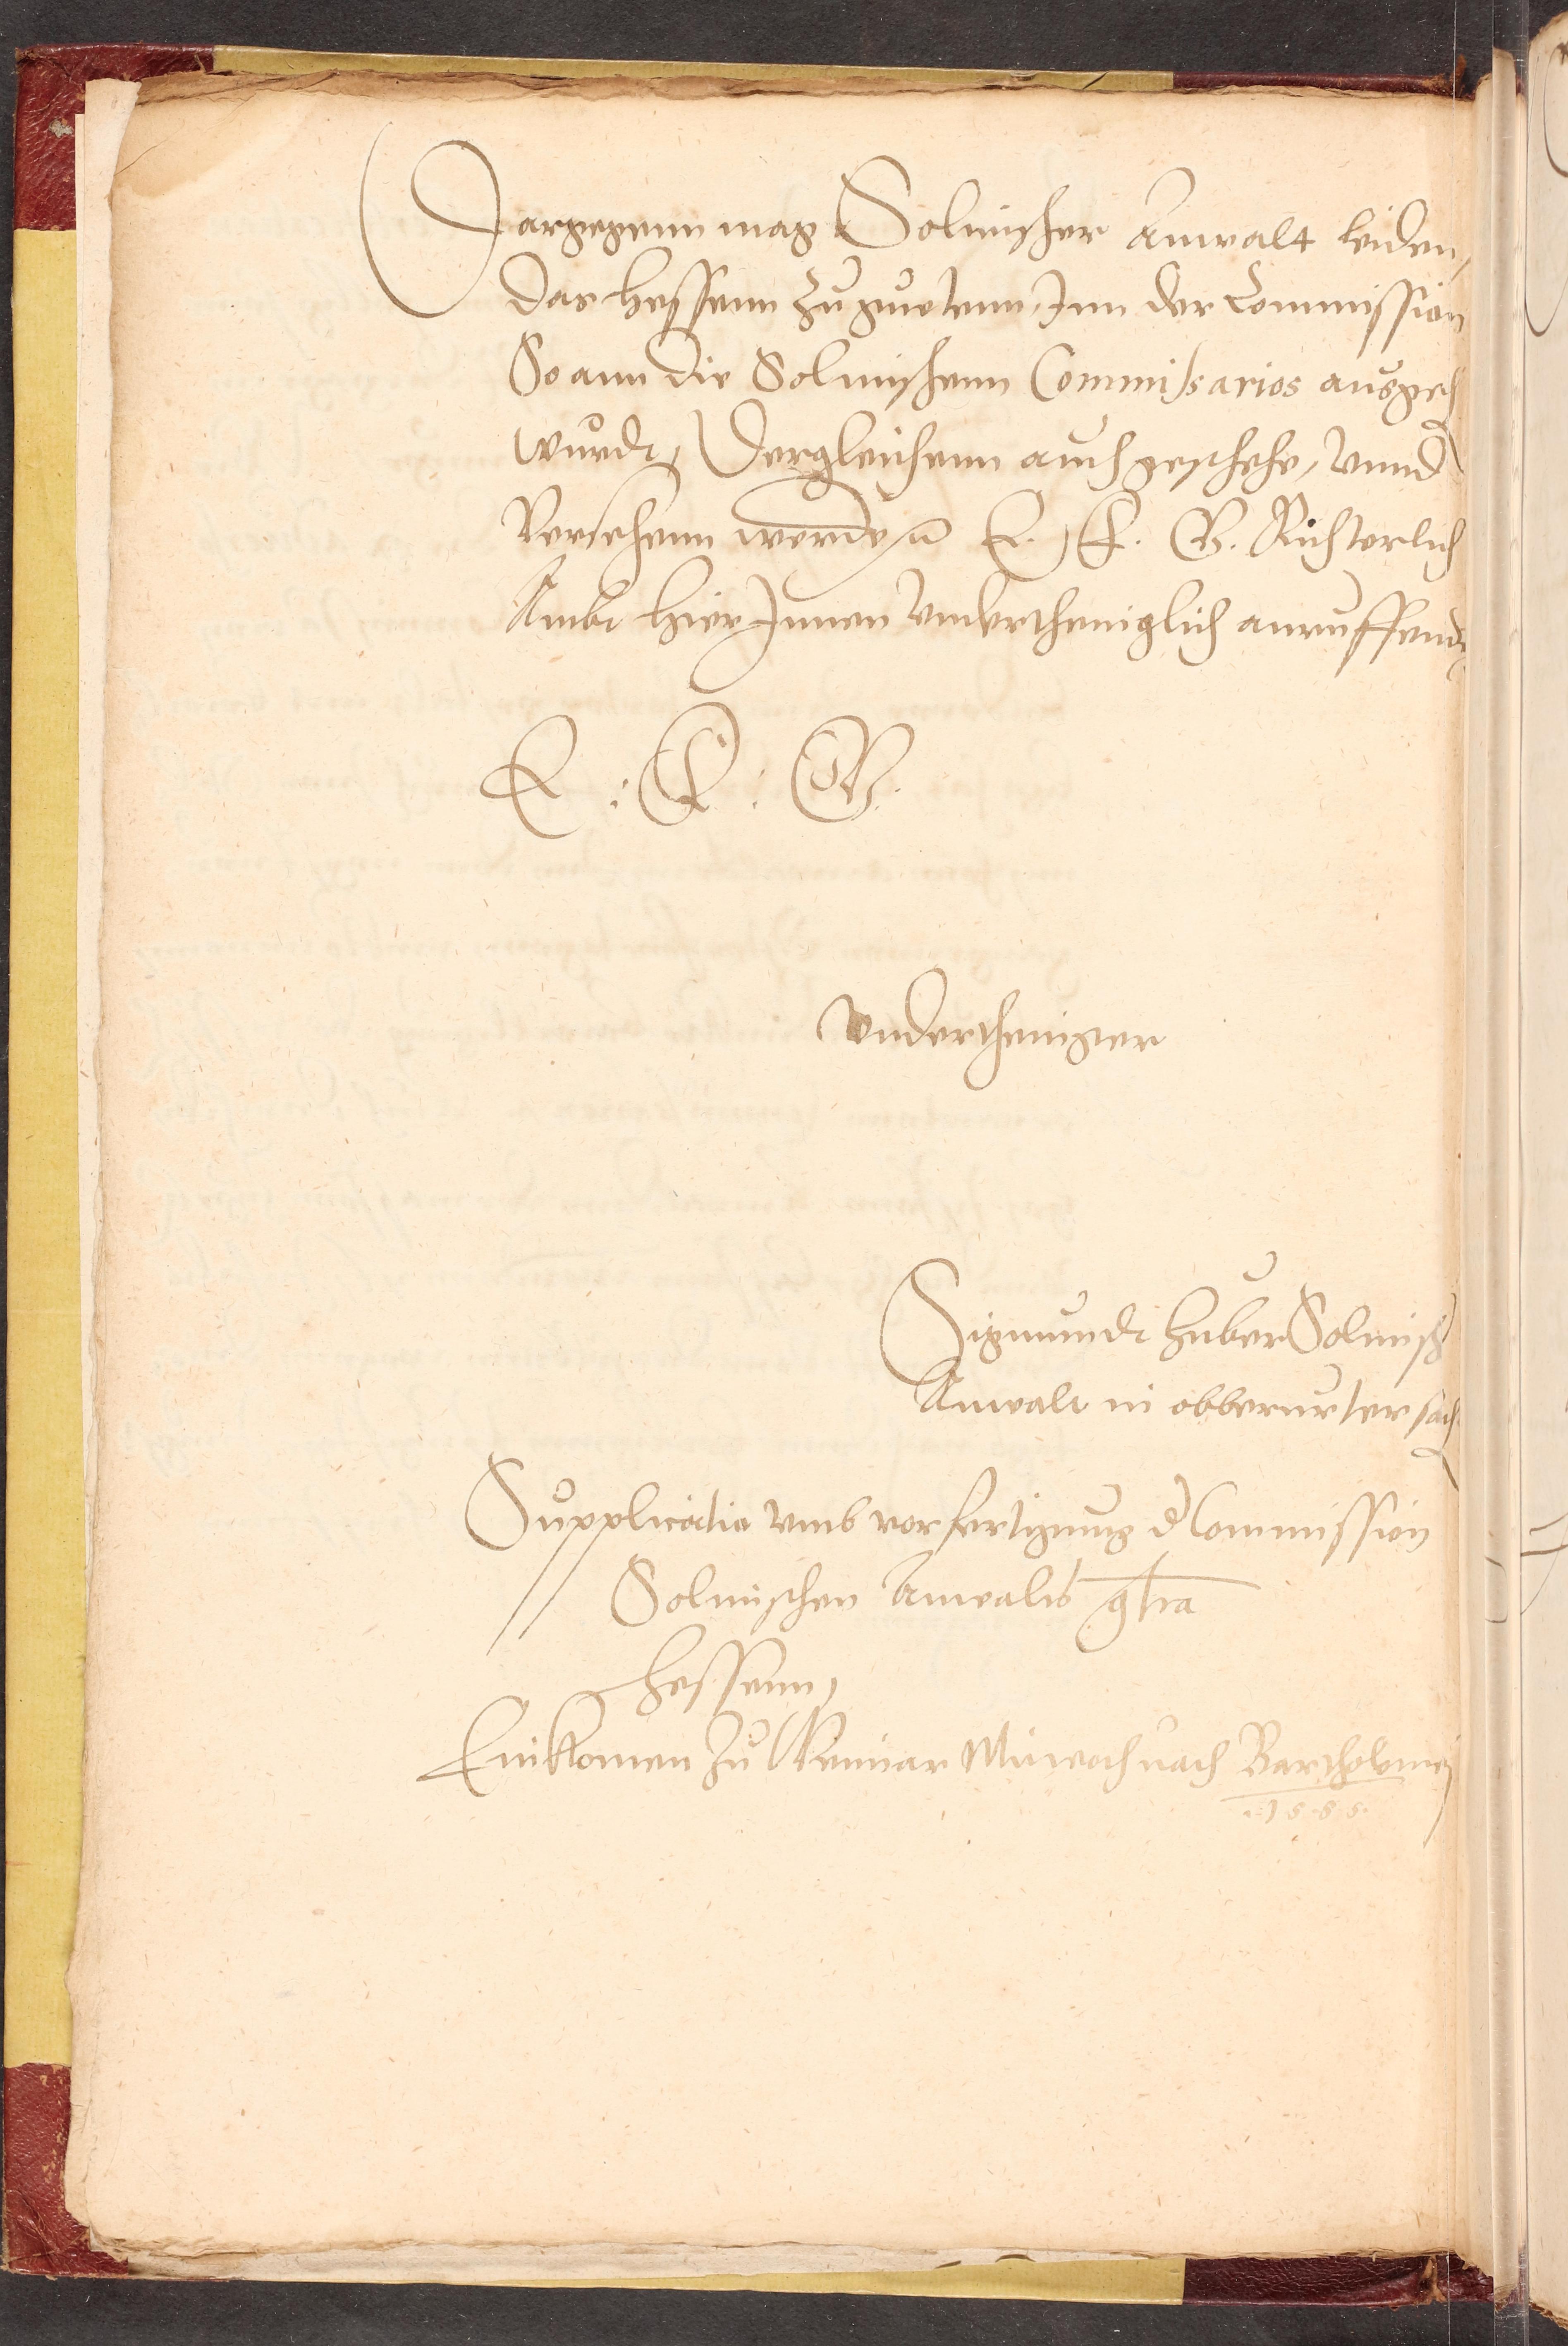 Dargegenn mag Solmischer Anwalt leiden,
das hessenn zu guetenn, Inn der Commission
So ann die Solmischenn Commissarios ausgeh
wurdt, Dergleichenn auch geschehe, vnnd
Versehenn werde, E. F. G. Richterlich
Ambt hier Innen vnderthenigklich anruffendt
E : F : G.
Vndertheniger
Sigmundt huber Solmisch
Anwalt in obberurter sach
Supplicatio vmb vorfertigung d Commission
Solmischen Anwalds gtra
hessenn,
Einkomen zu Weimar Mitwoch nach Bartholomej
.1555.